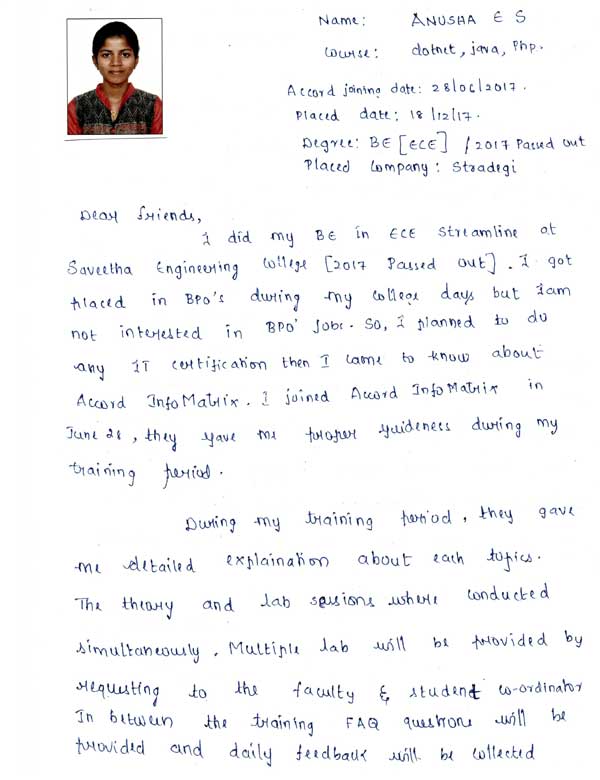 Name: ANUSHA E S
Course: dotnet, java, Php.
Accord joining date: 28/06/2017.
Placed date: 18/12/17.
Degree: BE [ECE] / 2017 Passed out
Placed Company: Stradegi
Dear friends,
I did my BE in ECE Streamline at
Saveetha Engineering College [2017 Passed out]. I got
placed in BPO's during my college days but Iam
not interested in BPO' Jobs. So, I planned to do
any IT certification then I came to know about
Accord InfoMatrix. I joined Accord InfoMatrix in
June 28, they gave me proper guideness during my
training period.
During my training period, they gave
me detailed explaination about each topics.
The theory and lab sessions where conducted
simultaneously. Multiple lab will be provided by
requesting to the faculty & student co-ordinator
In between the training FAQ questions will be
provided and daily feedback will be collected